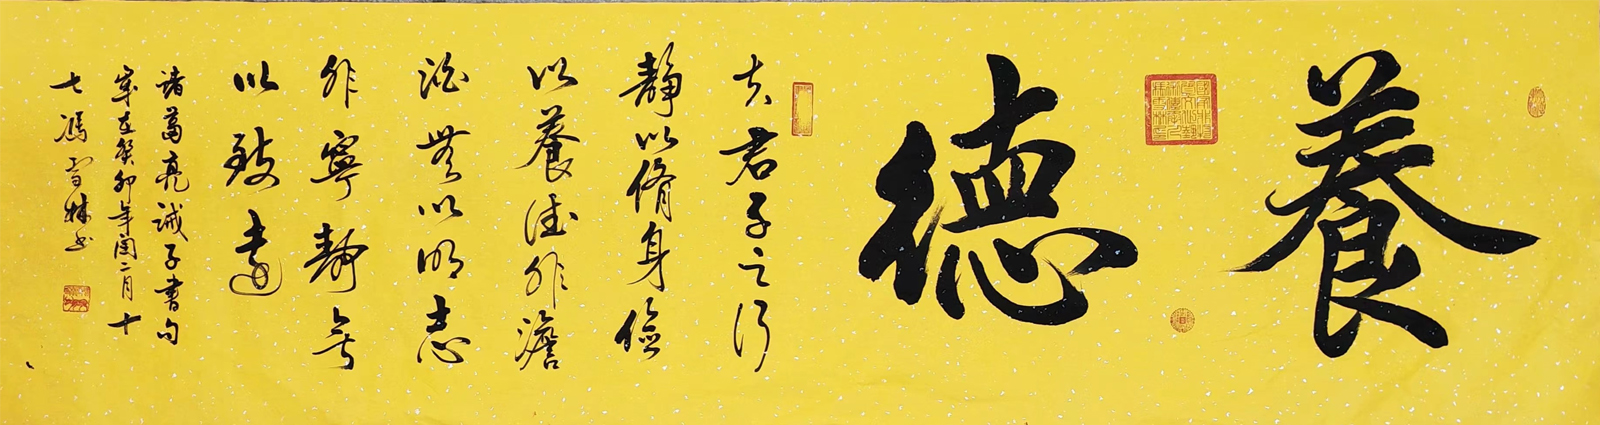 養德
夫君子之行
靜以脩身儉
以養德非澹
泊無以明志
非寧靜无
以致遠
諸葛亮誡子書句
歲在癸卯年閏二月十
七馮雪林書